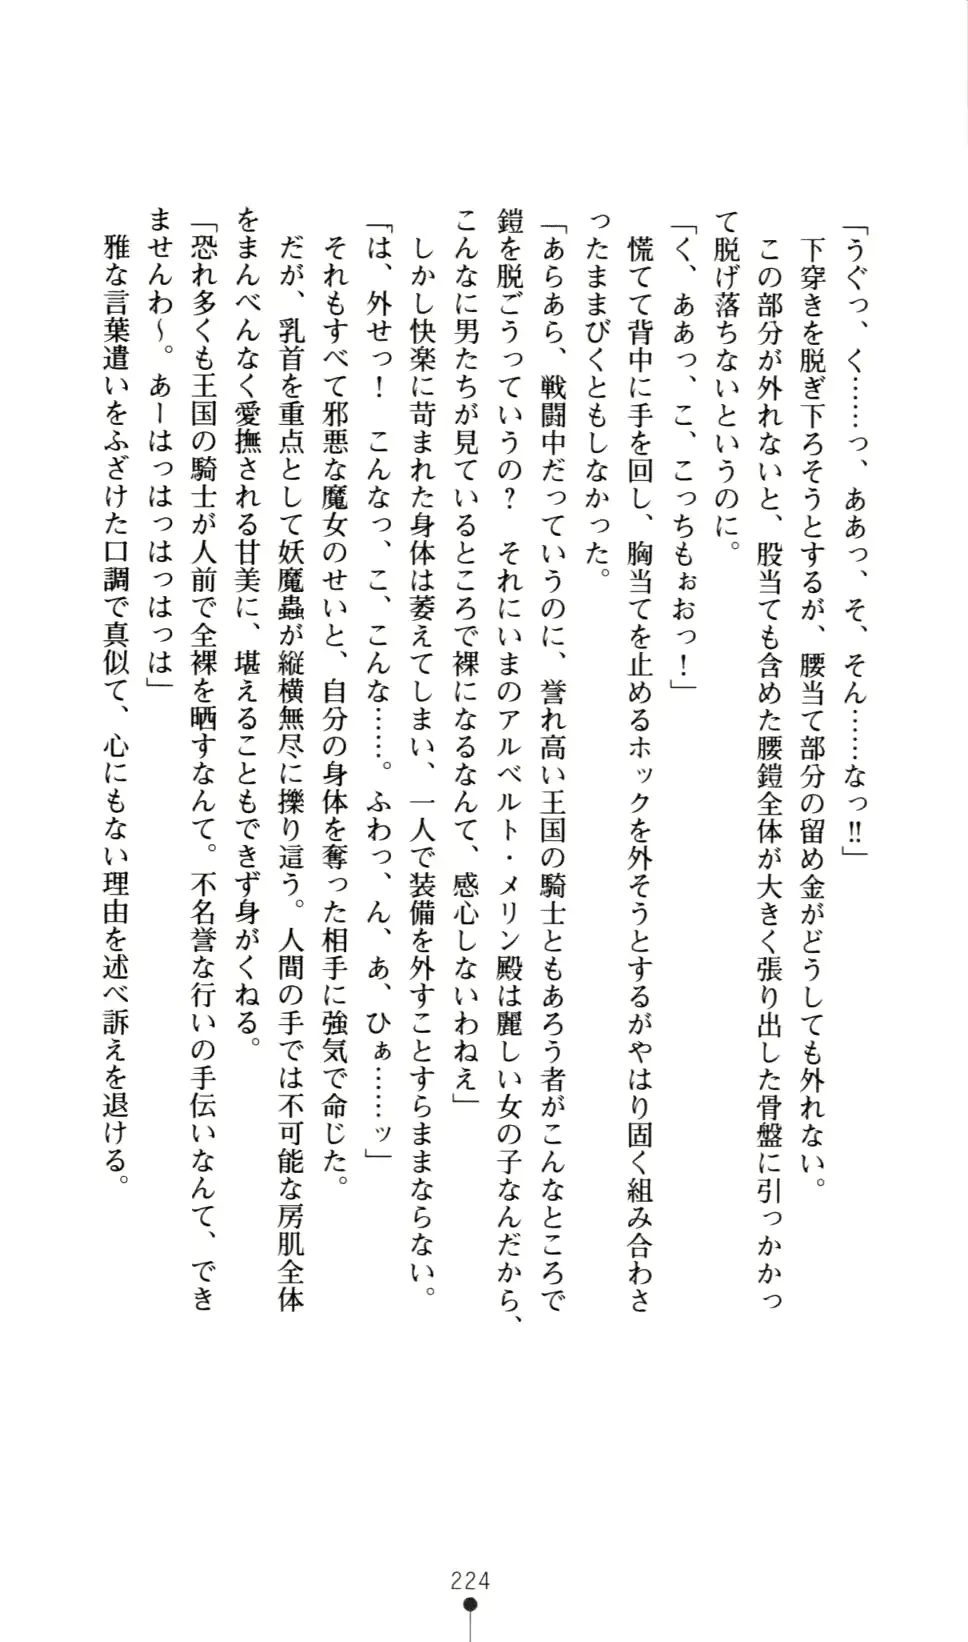 「うぐっ、く……っ、ああっ、そ、そん……なっ!!」
　下穿きを脱ぎ下ろそうとするが、腰当て部分の留め金がどうしても外れない。
　この部分が外れないと、股当ても含めた腰鎧全体が大きく張り出した骨盤に引っかかっ
て脱げ落ちないというのに。
「く、ああっ、こ、こっちもぉおっ！」
　慌てて背中に手を回し、胸当てを止めるホックを外そうとするがやはり固く組み合わさ
ったままびくともしなかった。
「あらあら、戦闘中だっていうのに、誉れ高い王国の騎士ともあろう者がこんなところで
鎧を脱ごうっていうの？　それにいまのアルベルト・メリン殿は麗しい女の子なんだから、
こんなに男たちが見ているところで裸になるなんて、感心しないわねえ」
　しかし快楽に苛まれた身体は萎えてしまい、一人で装備を外すことすらままならない。
「は、外せっ！　こんなっ、こ、こんな……。ふわっ、ん、あ、ひぁ……ッ」
　それもすべて邪悪な魔女のせいと、自分の身体を奪った相手に強気で命じた。
　だが、乳首を重点として妖魔蟲が縦横無尽に擽り這う。人間の手では不可能な房肌全体
をまんべんなく愛撫される甘美に、堪えることもできず身がくねる。
「恐れ多くも王国の騎士が人前で全裸を晒すなんて。不名誉な行いの手伝いなんて、でき
ませんわ～。あーはっはっはっはっは」
　雅な言葉遣いをふざけた口調で真似て、心にもない理由を述べ訴えを退ける。
224